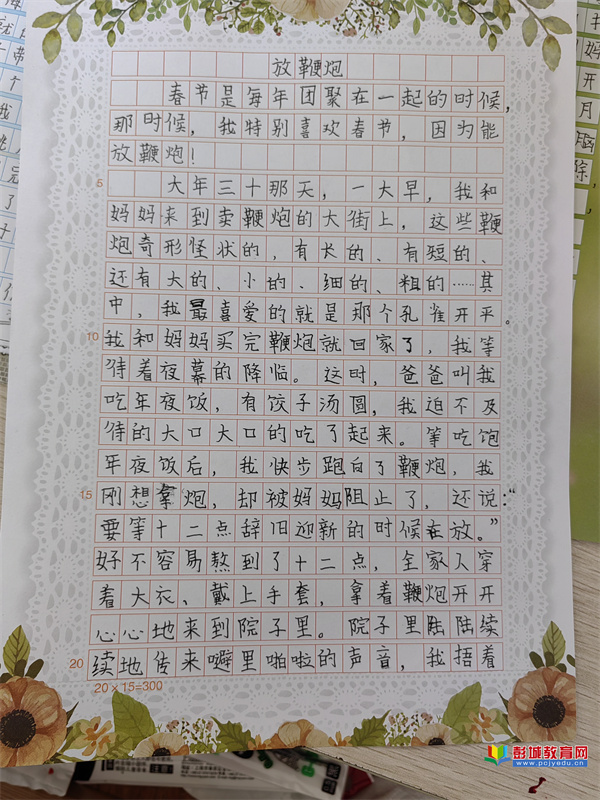 放鞭炮
春节是每年团聚在一起的时候，
那时候，我特别喜欢春节，因为能
放鞭炮！
5
大年三十那天，一大早，我和
妈妈来到卖鞭炮的大街上，这些鞭
炮奇形怪状的，有长的、有短的、
还有大的、小的、细的、粗的……其
中，我最喜爱的就是那个孔雀开平。
10
我和妈妈买完鞭炮就回家了，我等
待着夜幕的降临。这时，爸爸叫我
吃年夜饭，有饺子汤圆，我迫不及
待的大口大口的吃了起来。等吃饱
年夜饭后，我快步跑白了鞭炮，我
15
刚想拿炮，却被妈妈阻止了，还说：“
要等十二点辞旧迎新的时候在放。”
好不容易熬到了十二点，全家人穿
着大衣、戴上手套，拿着鞭炮开开
心心地来到院子里。院子里陆陆续
20
续地传来噼里啪啦的声音，我捂着
20×15=300
彭城教育网
www.pcjyedu.cn